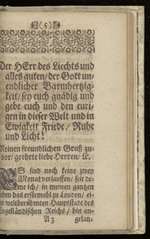 (3)
Der HErr des Liechts und
alles guten/ der Gott un-
endlicher Barmhertzig-
keit/ sey euch gnädig und
gebe euch und den euri-
gen in dieser Welt und in
Ewigkeit Friede/ Ruhe
und Licht!
Meinen freundlichen Gruß zu-
vor/ geehrte liebe Herren/ ꝛc.
ES sind noch keine zwey
Monat verflossen/ seit de-
me ich/ in meinem gantzen
Leben das erstemahl zu Londen/ ei-
ner weitberühmten Hauptstadt des
Engelländischen Reichs/ bin an-
A 2
gelan-